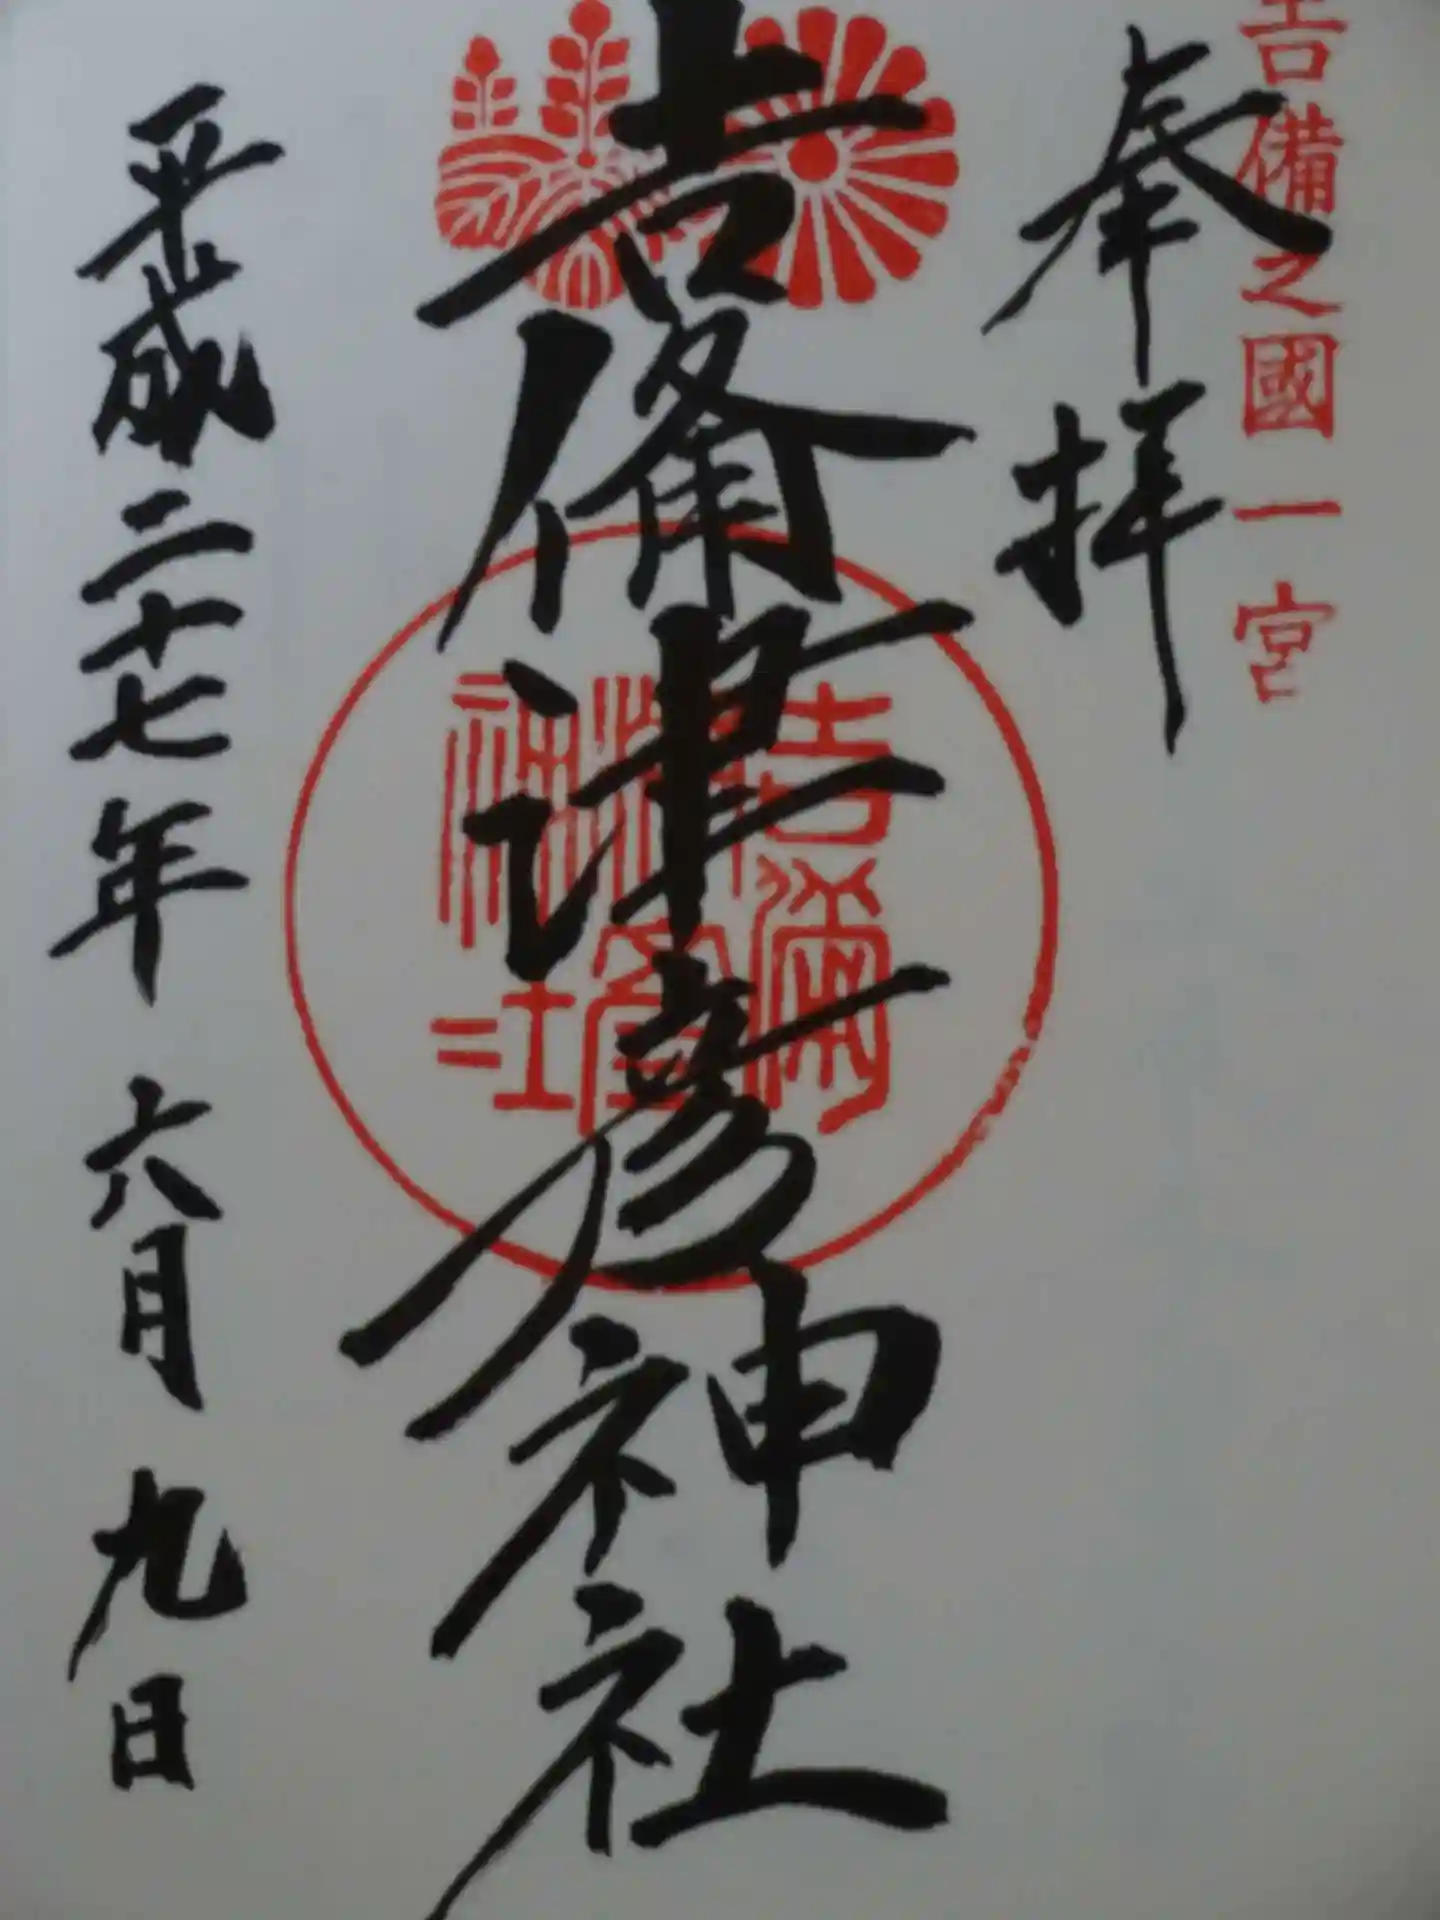 吉備之國一宮
奉拝
吉備津彦神社
吉備津宮神社
平成二十七年 六月 九日